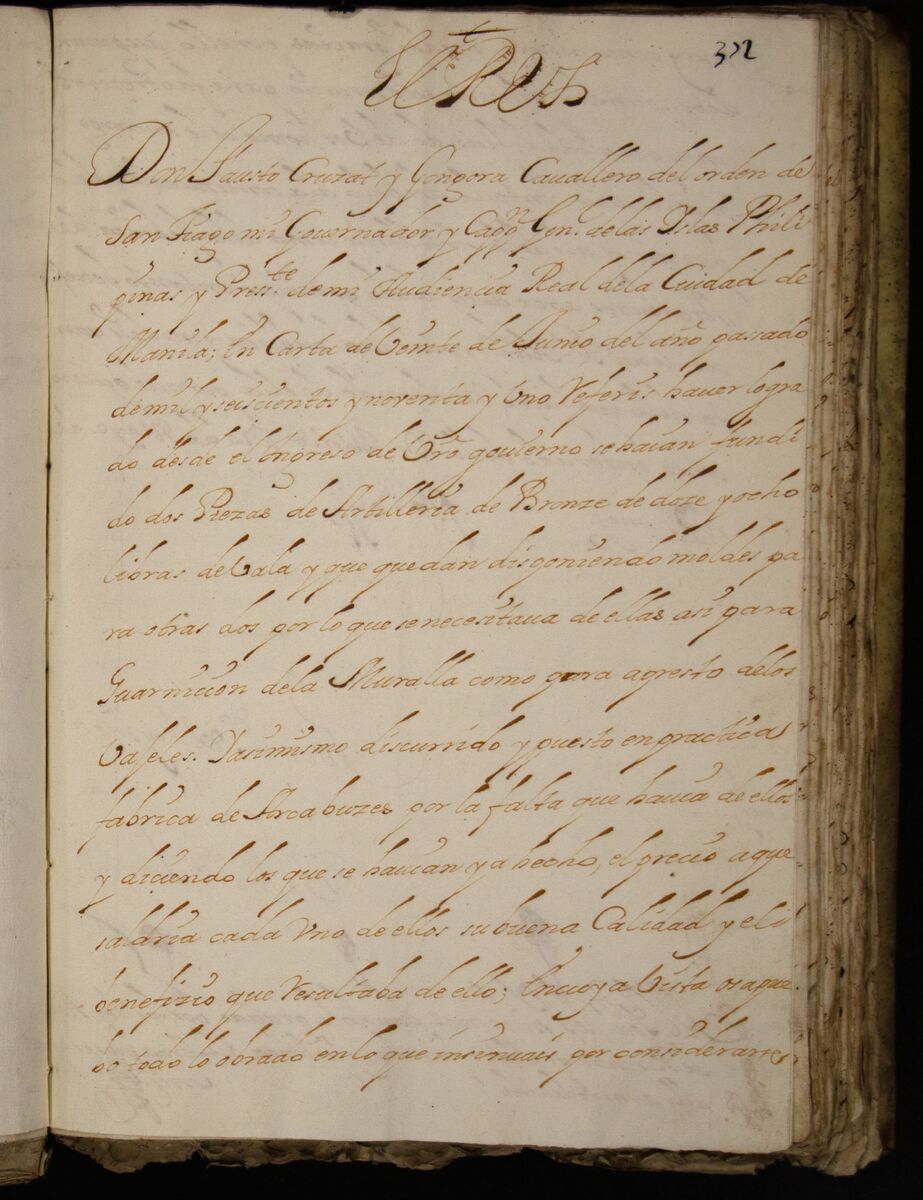 332
El Rey
Don Fausto Cruzat y Gongora Cauallero del orden de
San Tiago mi Gouernador y Cappn. Genl. delas Islas Phili
pinas y Press.te de mi Audiencia Real dela Ciudad de
Manila; En Carta de Veinte de Junio del año passado
de mil y seiscientos y nouenta y Vno Referis hauer logra
do desde el Ingreso de Vro. gouierno se hauian fundi
do dos Piezas de Artilleria de Bronze de doze y ocho
libras de Vala y que quedan disponiendo moldes pa
ra otras dos por lo que se necesitaua de ellas asi para
Guarnicion dela Muralla como para apresto delos
Vajeles. Y asimismo discurrido y puesto en practica
fabrica de Arcabuzes por la falta que hauia de ellos
y diciendo los que se hauian ya hecho, el precio a que
saldria cada Vno de ellos su buena Calidad y el
benefizio que Resultaba de ello; En cuya Vista os aprue
bo todo lo obrado en lo que insinuais por considerarse